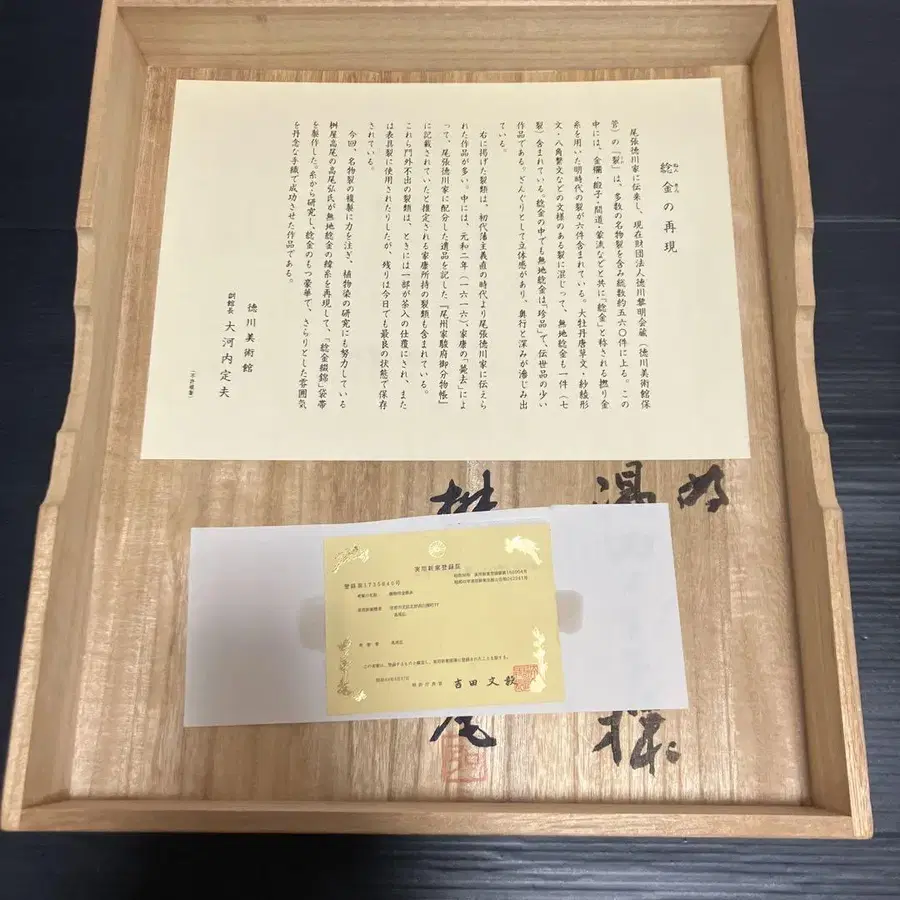 稔金の再現
ねん きん
尾張徳川家に伝来し、現在財団法人徳川黎明会蔵（徳川美術館保
管）の「裂」は、多数の名物裂を含み総数約五六〇件に上る。この
中には、金襴・緞子・間道・蒙流などと共に「稔金」と称される撚り金
糸を用いた明時代の裂が六件含まれている。大牡丹唐草文・紗綾形
文・八角繋文などの文様のある裂に混じって、無地稔金も一件（七
裂）含まれている。稔金の中でも無地稔金は「珍品」で、伝世品の少い
作品である。ざんぐりとして立体感があり、奥行と深みが滲じみ出
ている。
右に掲げた裂類は、初代藩主義直の時代より尾張徳川家に伝えら
れた作品が多い。中には、元和二年（一六一六）、家康の「薨去」によ
って、尾張徳川家に配分した遺品を記した『尾州家駿府御分物帳』
に記載されていたと推定される家康所持の裂類も含まれている。
これら門外不出の裂類は、ときには一部が茶入の仕覆にされ、また
は表具裂に使用されたりしたが、残りは今日でも最良の状態で保存
されている。
今回、名物裂の複製に力を注ぎ、植物染の研究にも努力している
桝屋高尾の高尾弘氏が無地稔金の緯糸を再現して、「稔金綴錦」袋帯
を製作した。糸から研究し、稔金のもつ豪華で、さらりとした雰囲気
を丹念な手織で成功させた作品である。
徳川美術館
副館長 大河内定夫
（不許複製）
実用新案登録証
登録第1735840号
特許庁長官 吉田文毅